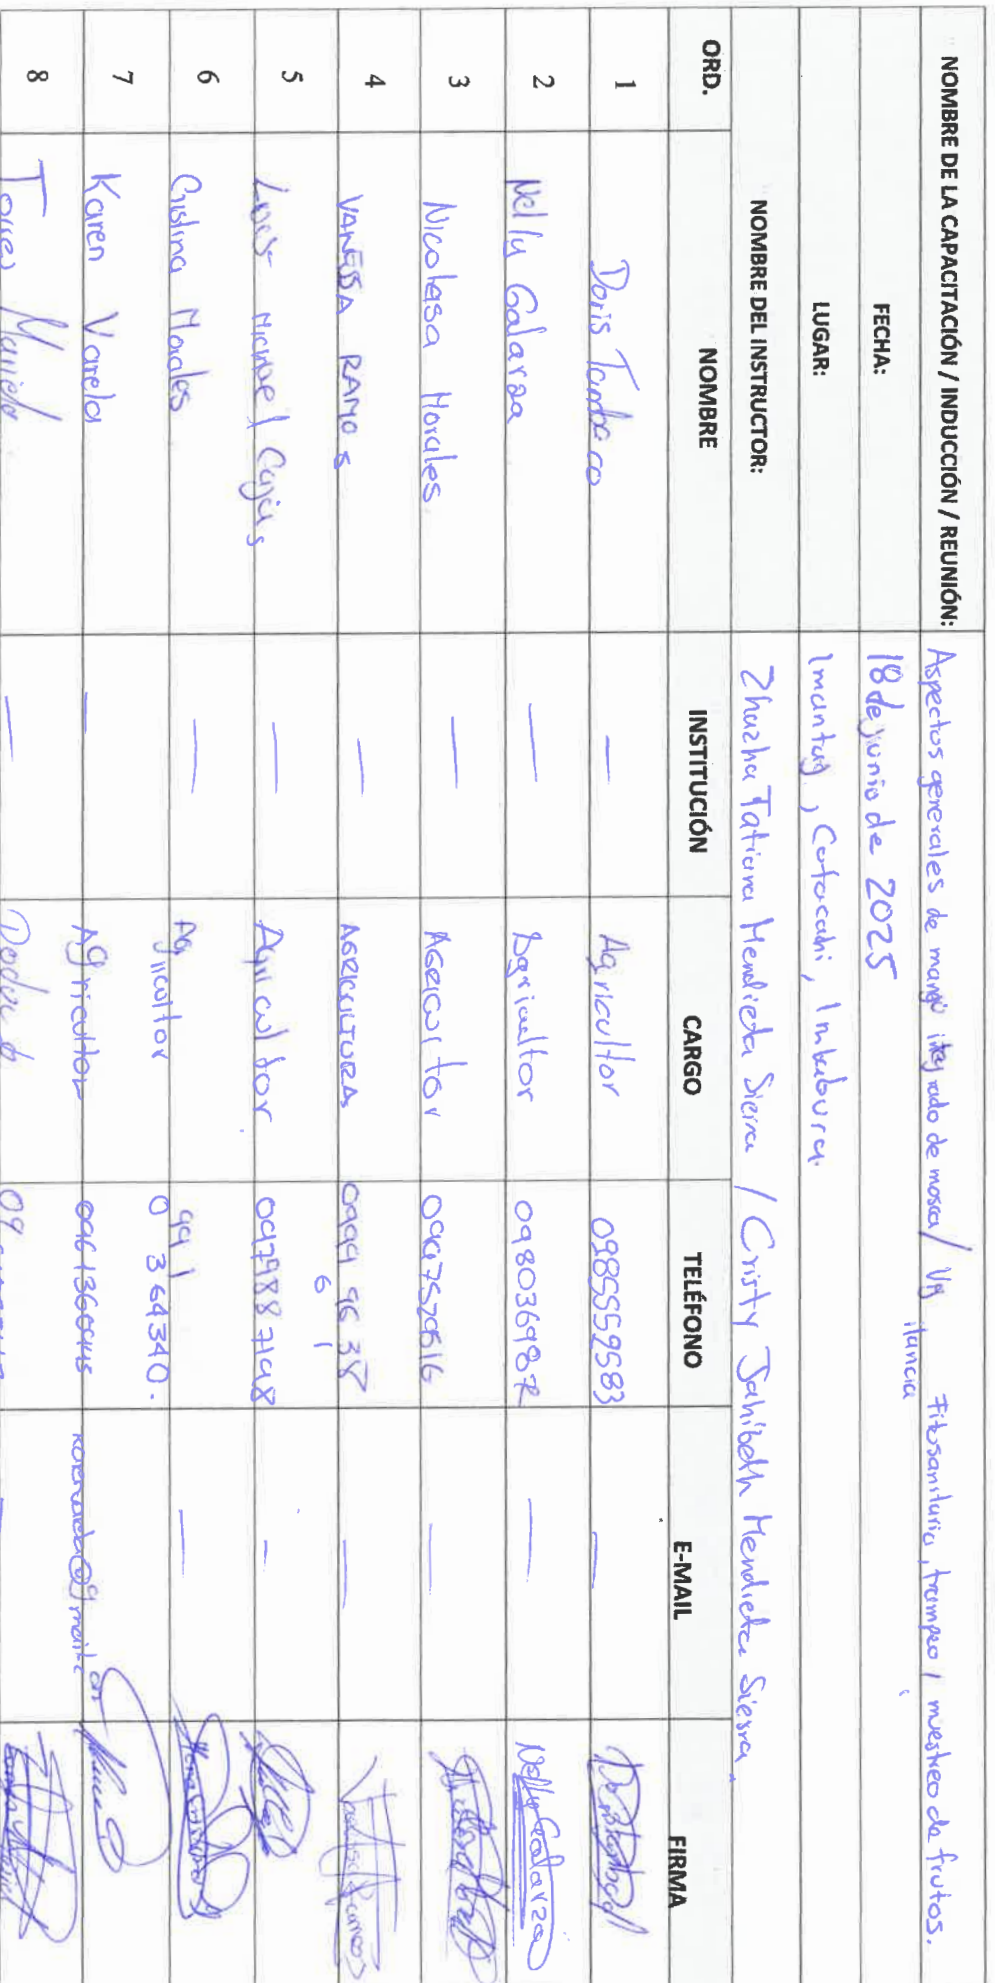 NOMBRE DE LA CAPACITACIÓN / INDUCCIÓN / REUNIÓN: Aspectos generales de manejo integrado de mosca / Vigilancia Fitosanitaria, trampeo / muestreo de frutos.
FECHA: 18 de junio de 2025
LUGAR: Imantag, Cotacachi, Imbabura.
NOMBRE DEL INSTRUCTOR: Zhuzha Tatiana Mendieta Sierra / Cristy Jahibeth Mendieta Sierra
ORD. NOMBRE INSTITUCIÓN CARGO TELÉFONO E-MAIL FIRMA
1 Doris Tambaco — Agricultor 0985559583 —
2 Nelly Galarza — Agricultor 098036987 — Nelly Galarza
3 Nicolasa Morales. — AGRICULTOR —
4 VANESSA RAMOS — AGRICULTURA — Vanessa Ramos
5 Luis Michael Cajas — Agricultor 0979887198 —
6 Cristina Morales — Agricultor —
7 Karen Varela — Agricultor
8 Torres — 09